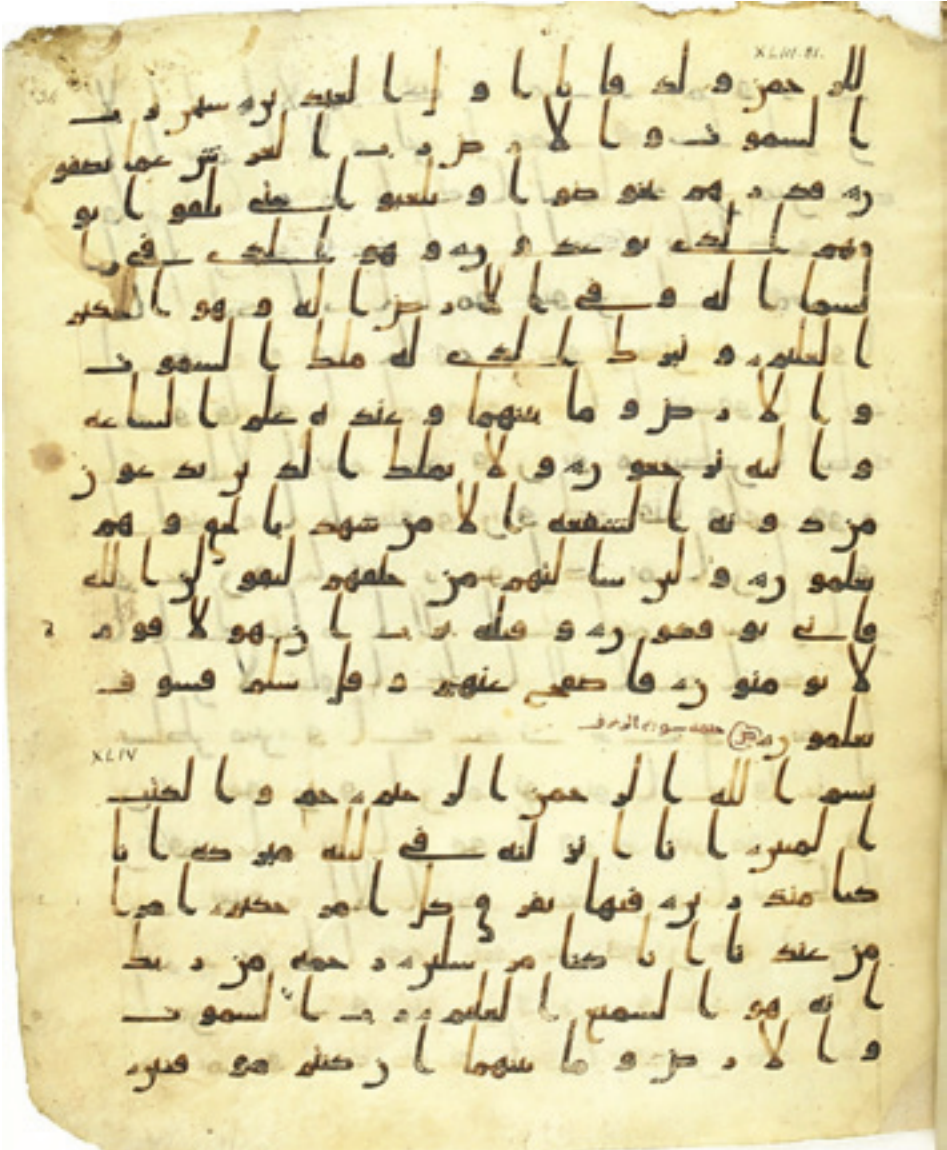 XLIII-81.
للرحمن ولد فانا اول العبدين سبحن رب
السموت والارض رب العرش عما يصفو
ن فذرهم يخوضوا ويلعبوا حتى يلقوا يو
مهم الذي يوعدون وهو الذي في ا
لسما اله وفي الارض اله وهو الحكيم
العليم وتبرك الذي له ملك السموت
والارض وما بينهما وعنده علم الساعه
واليه ترجعون ولا يملك الذين يدعون
من دونه الشفعه الا من شهد بالحق وهم
يعلمون ولين سالتهم من خلقهم ليقولن الله
فانى يوفكون وقيله يرب ان هولا قوم
لا يومنون فاصفح عنهم وقل سلم فسوف
يعلمون ختمه سورة الزخرف
XLIV
بسم الله الرحمن الرحيم حم والكتب
المبين انا انزلنه في ليله مبركه انا
كنا منذرين فيها يفرق كل امر حكيم امرا
من عندنا انا كنا مرسلين رحمه من ربك
انه هو السميع العليم رب السموت
والارض وما بينهما ان كنتم موقنين